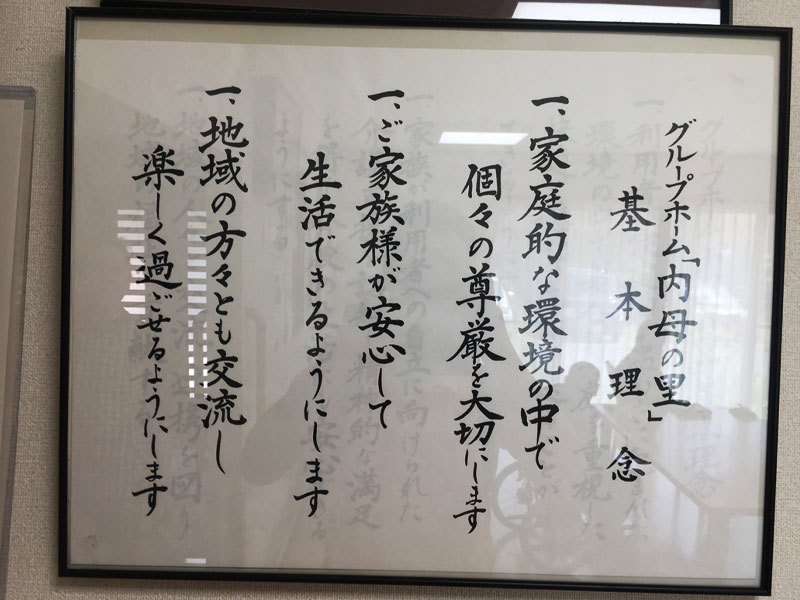 グループホーム「内母の里」
基本理念
一、家庭的な環境の中で
個々の尊厳を大切にします
一、ご家族様が安心して
生活できるようにします
一、地域の方々とも交流し
楽しく過ごせるようにします